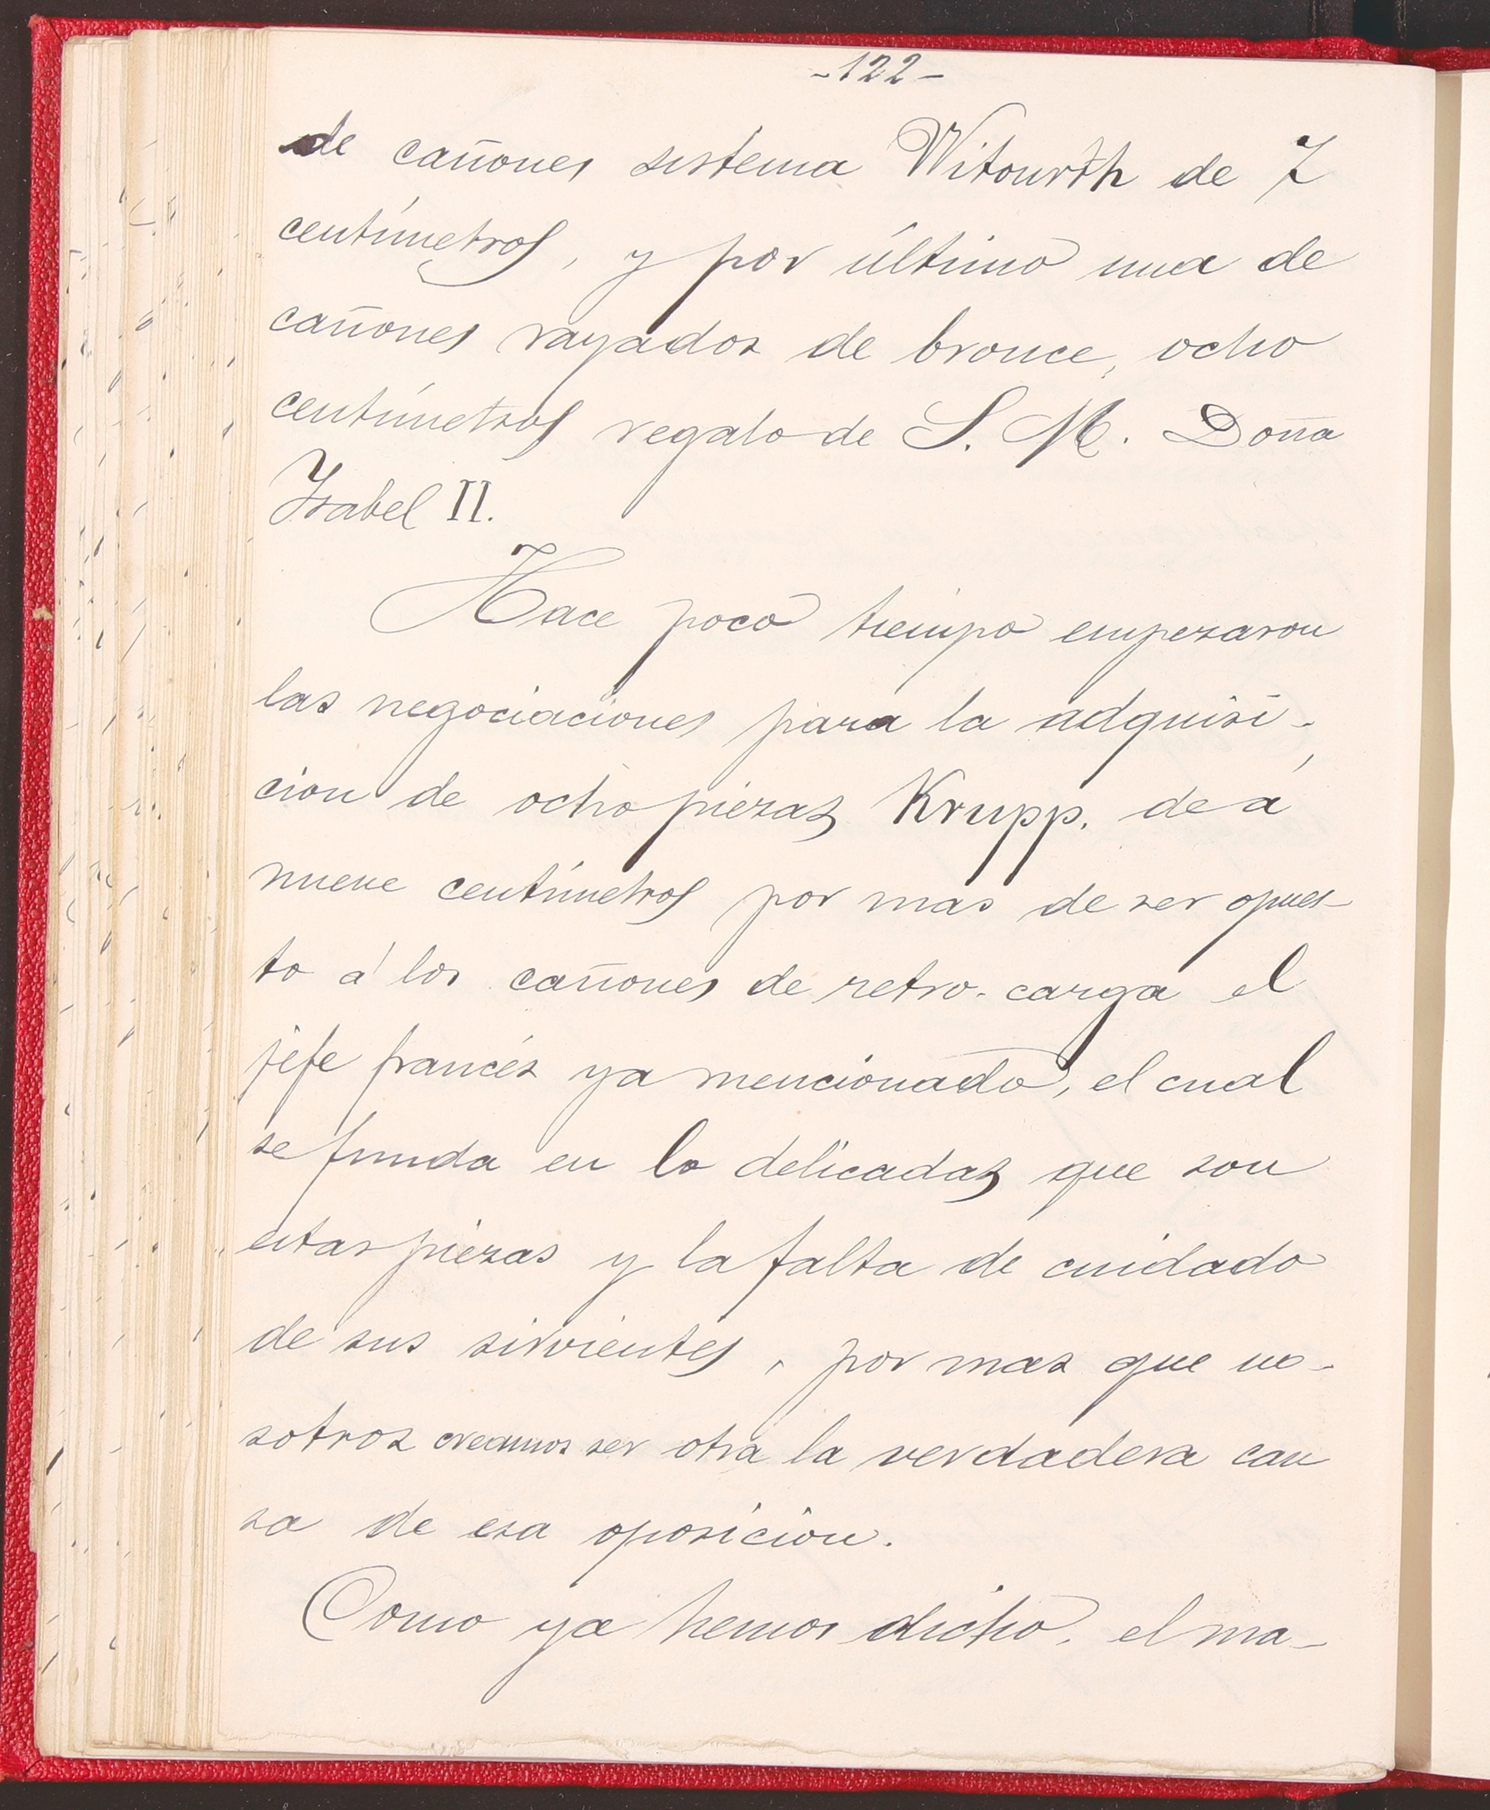 -122-
de cañones sistema Witourth de 7
centímetros, y por último una de
cañones rayados de bronce, ocho
centímetros regalo de S. M. Doña
Ysabel II.
Hace poco tiempo empezaron
las negociaciones para la adquisi-
cion de ocho piezas Krupp. de á
nueve centímetros por mas de ser opues-
to á los cañones de retro-carga el
jefe francés ya mencionado, el cual
se funda en lo delicadas que son
estas piezas y la falta de cuidado
de sus sirvientes, por mas que no-
sotros creamos ser otra la verdadera cau
sa de esa oposicion.
Como ya hemos dicho, el ma-